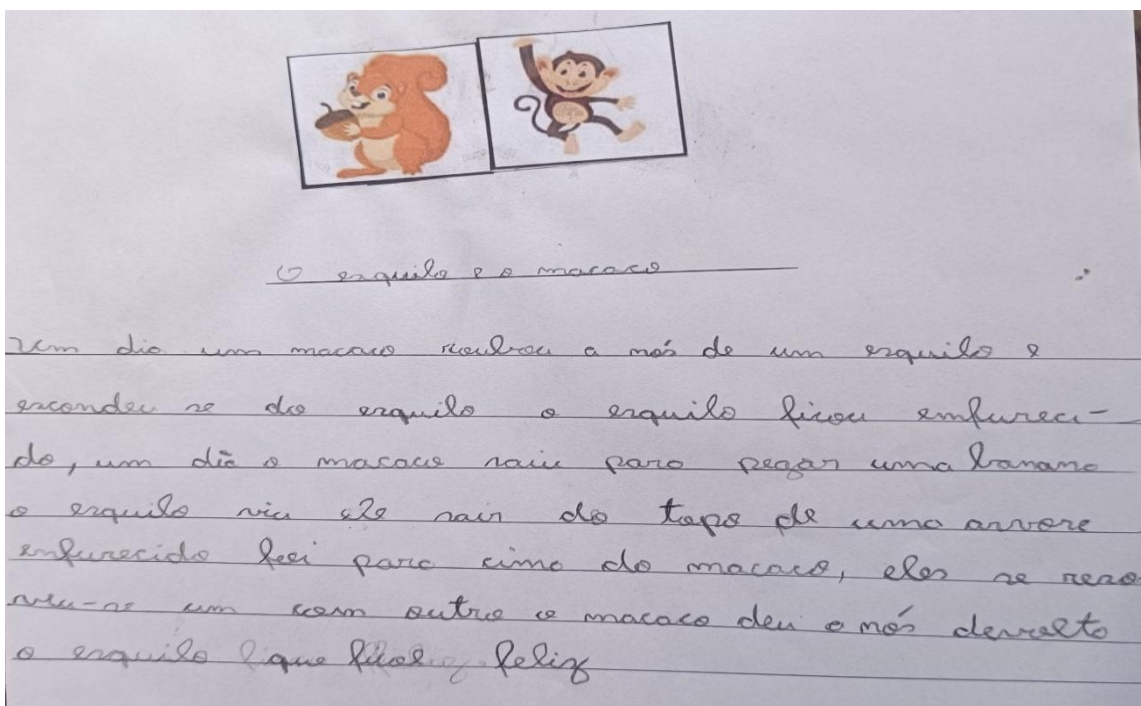 O esquilo e o macaco
Um dia um macaco roubou a nós de um esquilo e
escondeu se do esquilo o esquilo ficou enfureci-
do, um dia o macaco saiu para pegar uma banana
o esquilo viu ele sair do topo de uma arvore
enfurecido foi para cima do macaco, eles se reso
veu-se um com outro o macaco deu a nós devolto
o esquilo que feliz